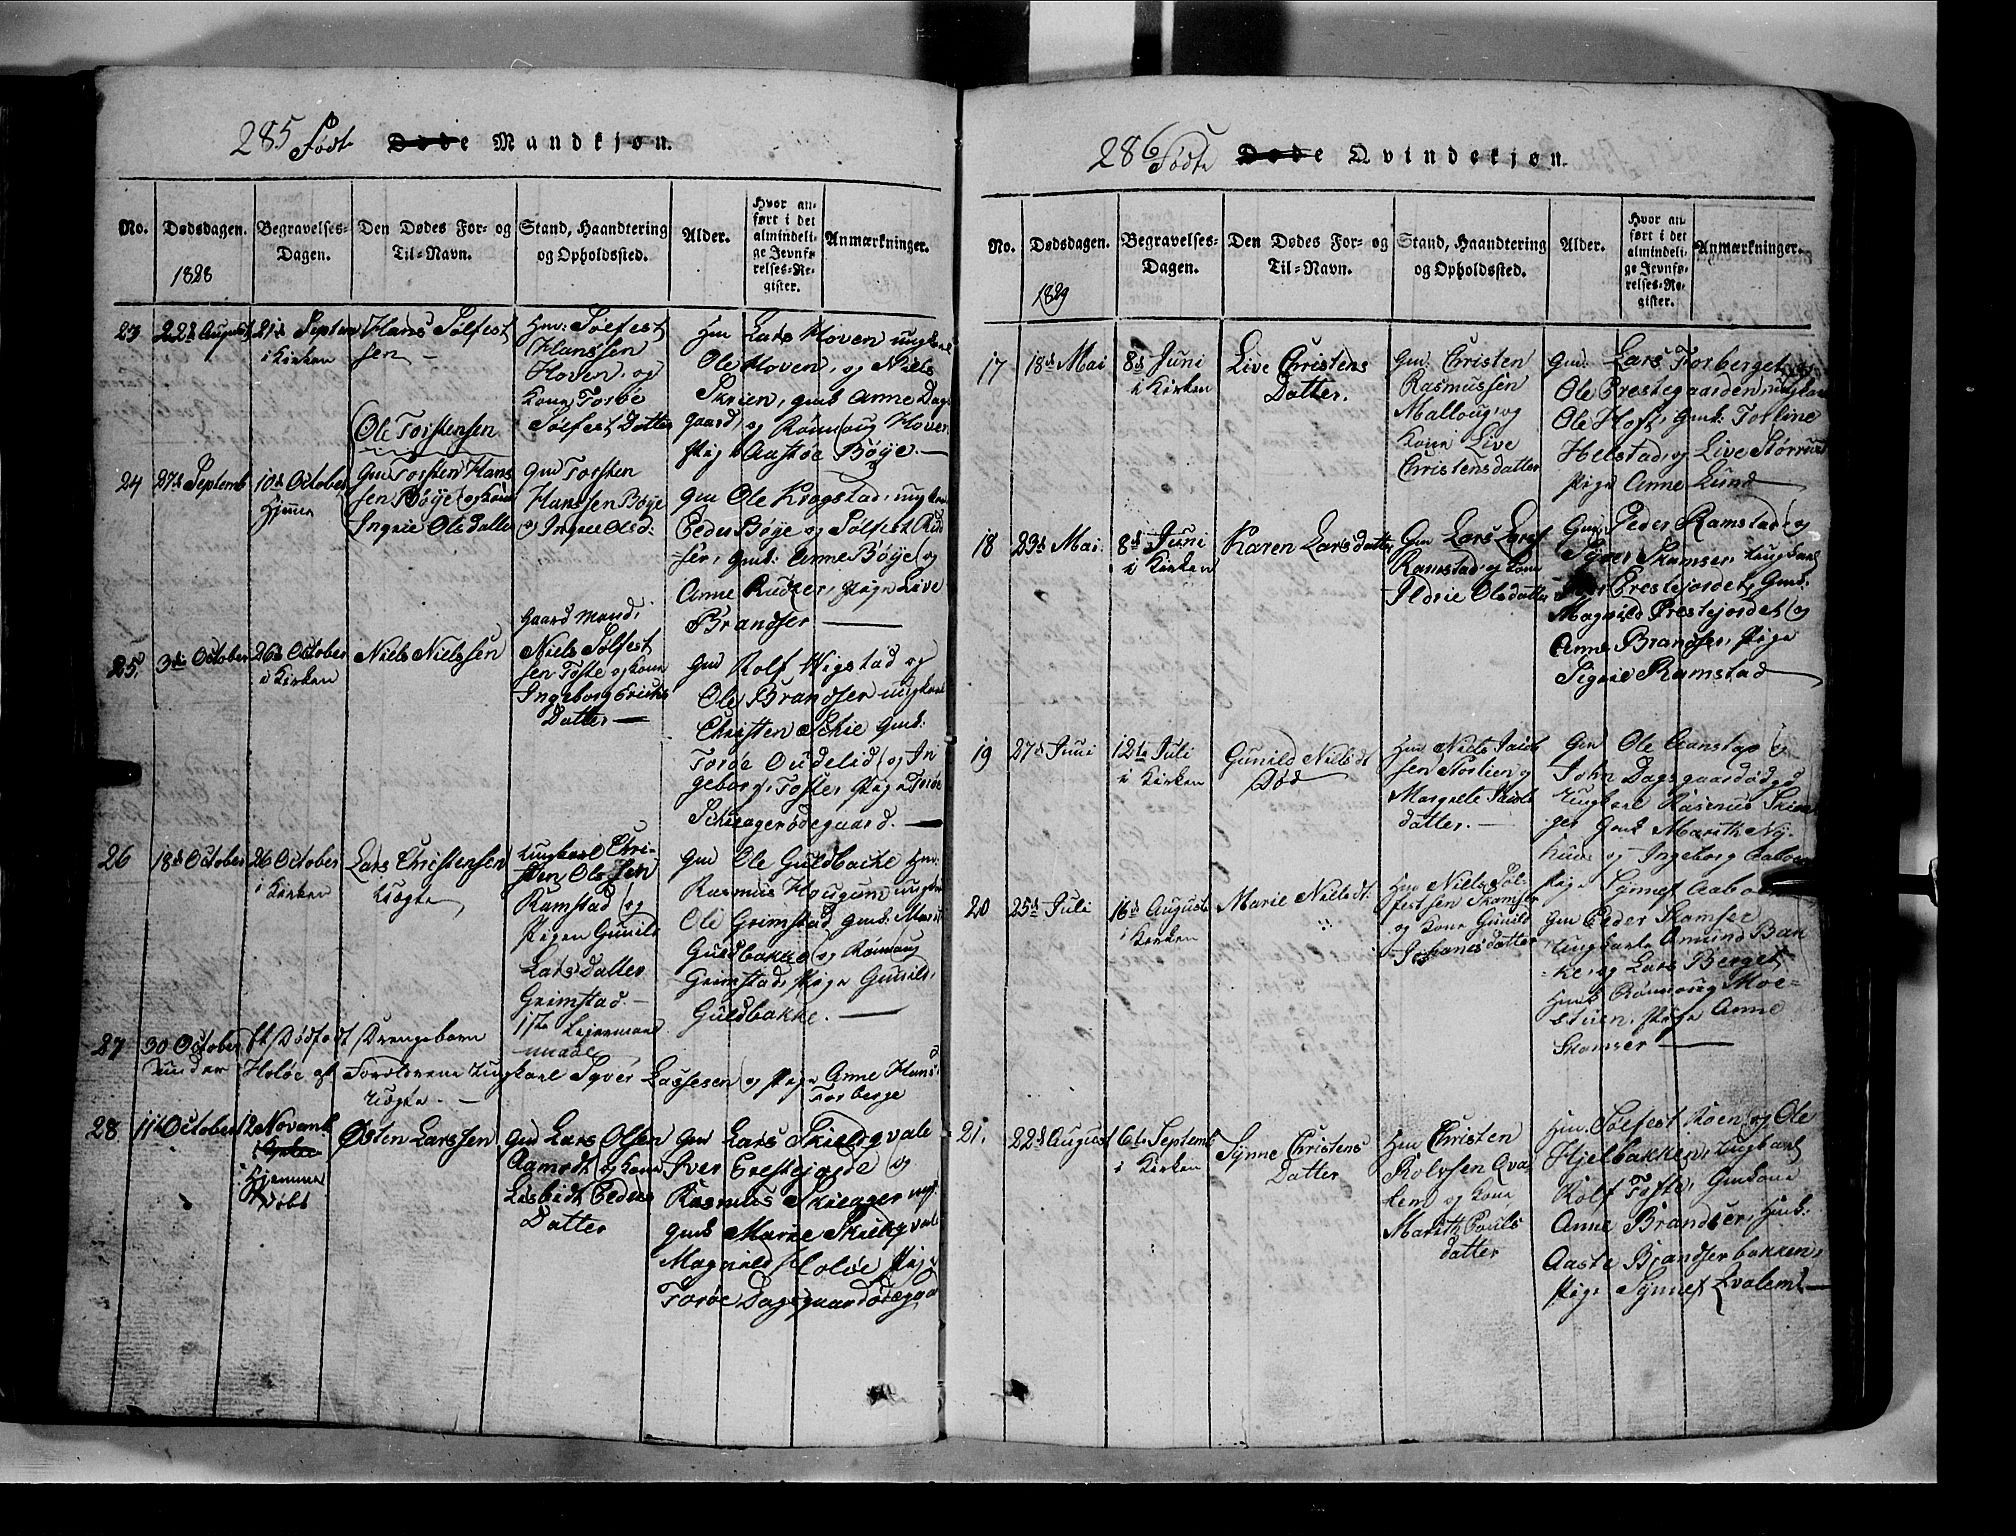 285 Fødte Døde Mandkjøn.
No.
Dødsdagen.
1828
Begravelses-
Dagen.
Den Dødes For- og
Til-Navn.
Stand, Haandtering
og Opholdssted.
Alder.
Hvor an-
ført i det
almindeli-
ge Jevnfø-
relses-Re-
gister.
Anmærkninger.
23
22de August
21de Septem
i Kirken
Hans Sølfest
sen
Hm: Sølfest
Hanssen
Hoven og
Kone Torbe
Sølfest Datter
Hm Lars Hoven ungkarl
Ole Hoven, og Niels
Skrien, gmk Anne Dags
gaard, og Rønnoug Hoven
Pige Aastøe Bøye.
24
27de Septemb
10de October
Hjemme
Ole Torstensen
Gm Torsten Hans
sen Bøye og Kone
Ingrie Ole Datter
Gm Torsten
Hanssen Bøye
og Ingrie Olsd.
Gm Ole Krogstad, ungkarl
Peder Bøye og Sølfest Rud
ser, gmk: Anne Bøye og
Anne Rudser, Pige Live
Brandser
25.
3die October
26de October
i Kirken
Niels Nielssen
Gaard Mand;
Niels Sølfest
sen Tofte og Kone
Ingeborg Erichs
Datter
Gm Rolf Wigstad og
Ole Brandser ungkarl
Christen Schie Gmk:
Torøe Oudelid og In
geborg Tofte, Pige Torøe
Schieagerødegaard.
26
18de October
26 October
i Kirken
Lars Christensen
Uægte
Ungkarl Chri-
sten Olsen
Ramstad og
Pigen Gunild
Lars Datter
Grimstad.
1ste Leiermaal
Gm Ole Guldbacke Hm.
Rasmus Hougum ungkarl
Ole Grimstad gmk: Marit
Guldbakke og Rønnoug
Grimstad, Pige Gunild
Guldbakke.
27
30 October
Et Dødfødt Drengebarn
under Holøe af Forældrene Ungkarl Syver Lassesen og Pige Anne Hans
Uægte.
Forberge
28
11te October
12 Novemb.
Hjemme
Døbt
Østen Larssen
Gm Lars Olsen
Aamodt og Kone
Lisbeth Peders
Datter
Gm Lars Skieldqvale
Iver Prestgjorde og
Rasmus Skieager
gmk Marie Skieldqvale
Magnild Holøe Pige
Torøe Dagsgaardødegaa
286 Fødte Døde Qvindekjøn.
No.
Dødsdagen.
1829
Begravelses-
Dagen.
Den Dødes For- og
Til-Navn.
Stand, Haandtering
og Opholdssted.
Alder.
Hvor an-
ført i det
almindeli-
ge Jevnfø-
relses-Re-
gister.
Anmærkninger.
17
18de Mai
8de Juni
i Kirken
Live Christens
Datter.
Gm: Christen
Rasmussen
Malloug, og
Kone Live
Christensdatter
Gm: Lars Forberget
Ole Prestegaarden, ungkarl
Ole Hoft, Gmk: Torline
Helstad, og Live Størrusd
Pige Anne Lund
18
23de Mai.
8de Juni
i Kirken
Karen Larsdatter
Gm Lars Larss
Ramstad, og Kone
Ildrie Olsdatter
Gm: Peder Ramstad og
Syver Skamser, Ungkarl
Prestejordet, Gmk.
Magnild Prestejordet og
Anne Brandser, Pige
Sigrie Ramstad
19
27de Juni
12te Juli
i Kirken
Gunild Nielsdt
Død
Hm Niels Jacob
sen Stortien og
Margrete Jacobs
datter.
Gm Ole Aanstap og
John Dagsgaardødgd
Ungkarl Rasmus Skiea
ger Gmk Marith Ny-
huus og Ingeborg Aaboen
Pige Synnef Aaboen
20
25de Juli
16de August
i Kirken
Marie Nielsdt.
Hm Niels Søl-
festsen Skamser
og Kone Gunild
Johanesdatter
Gm Peder Skamser
Ungkarle Amund Bak
ke, og Lars Berget
Hmk Rønnoug Moe-
stuen. Pige Anne
Skamser
21.
22de August
6te Septemb
i Kirken
Synne Christens
Datter
Hm Christen
Rolvsen Qva
len og Kone
Marith Pouls
datter
Hm. Sølfest Roen og Ole
Hjelbakken, Ungkarl
Rolf Tofte, Gmkone
Anne Brandser, Hmk:
Aaste Brandserbakken,
Pige Synnef Qvalem